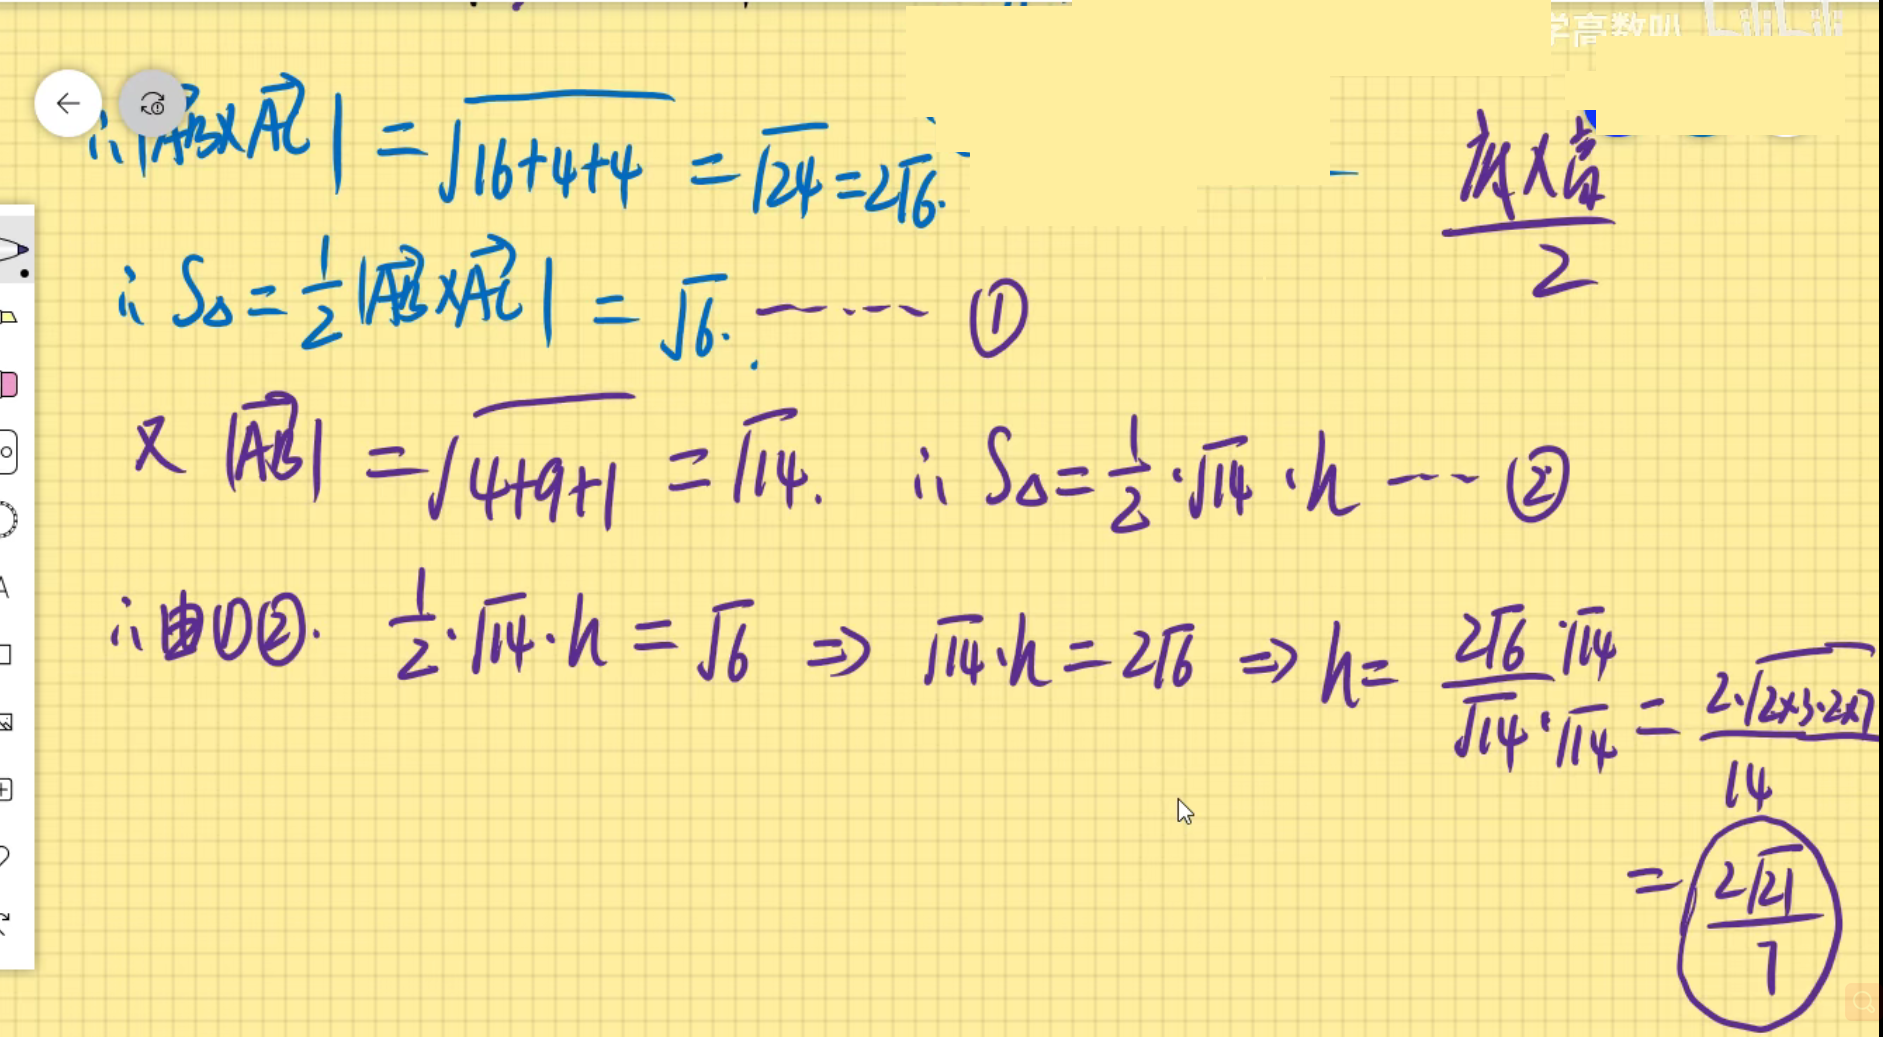 学高数叭
∴ |AB×AC| = √16+4+4 = √24 = 2√6.
底×高
2
∴ S△ = 1/2 |AB×AC| = √6. ------ ①
又 |AB| = √4+9+1 = √14. ∴ S△ = 1/2 · √14 · h ---- ②
∴ 由①②. 1/2 · √14 · h = √6 ⇒ √14 · h = 2√6 ⇒ h = 2√6 · √14 / √14 · √14 = 2·√2×3·2×7 / 14
= 2√21 / 7